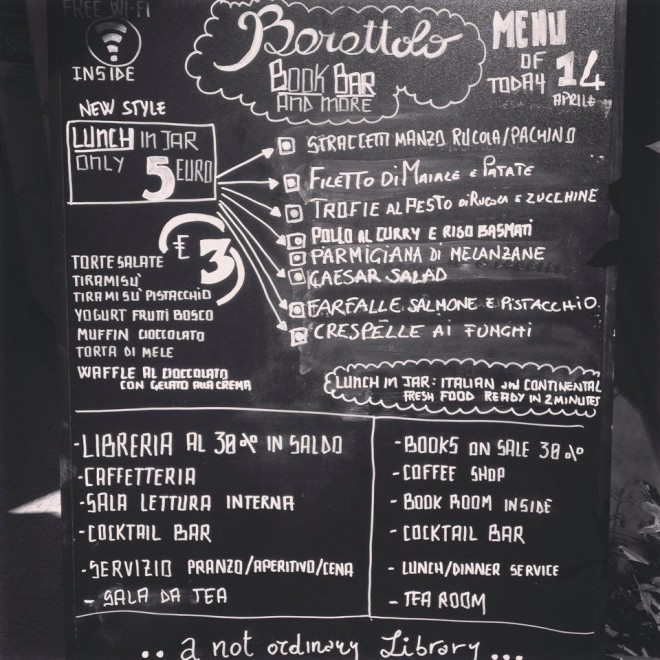 FREE WI-FI
INSIDE
Berettolo
BOOK BAR
AND MORE
MENU
OF
TODAY 14
APRILE
NEW STYLE
LUNCH IN JAR
ONLY 5 EURO
STRACCETTI MANZO RUCOLA/PACHINO
FILETTO DI MAIALE E PATATE
TROFIE AL PESTO DI RUCOLA E ZUCCHINE
POLLO AL CURRY E RISO BASMATI
PARMIGIANA DI MELANZANE
CAESAR SALAD
FARFALLE SALMONE E PISTACCHIO
CRESPELLE AI FUNGHI
€ 3
TORTE SALATE
TIRAMISÙ
TIRAMISÙ PISTACCHIO
YOGURT FRUTTI BOSCO
MUFFIN CIOCCOLATO
TORTA DI MELE
WAFFLE AL CIOCCOLATO
CON GELATO ALLA CREMA
LUNCH IN JAR: ITALIAN AND CONTINENTAL
FRESH FOOD READY IN 2 MINUTES
-LIBRERIA AL 30% IN SALDO
-CAFFETTERIA
-SALA LETTURA INTERNA
-COCKTAIL BAR
-SERVIZIO PRANZO/APERITIVO/CENA
- SALA DA TEA
- BOOKS ON SALE 30%
- COFFEE SHOP
- BOOK ROOM INSIDE
- COCKTAIL BAR
- LUNCH/DINNER SERVICE
- TEA ROOM
.. a not ordinary Library ...